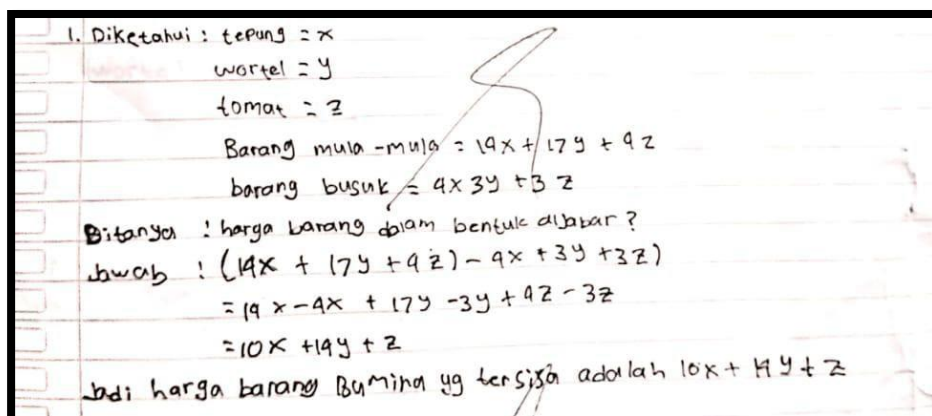 1. Diketahui : tepung = x
wortel = y
tomat = z
Barang mula-mula = 14x + 17y + 4z
barang busuk = 4x 3y + 3 z
Ditanya : harga barang dalam bentuk aljabar ?
Jawab : (14x + 17y + 4z) - 4x + 3y + 3z)
= 14x - 4x + 17y - 3y + 4z - 3z
= 10x + 14y + z
Jadi harga barang Bu Mina yg tersisa adalah 10x + 14y + z